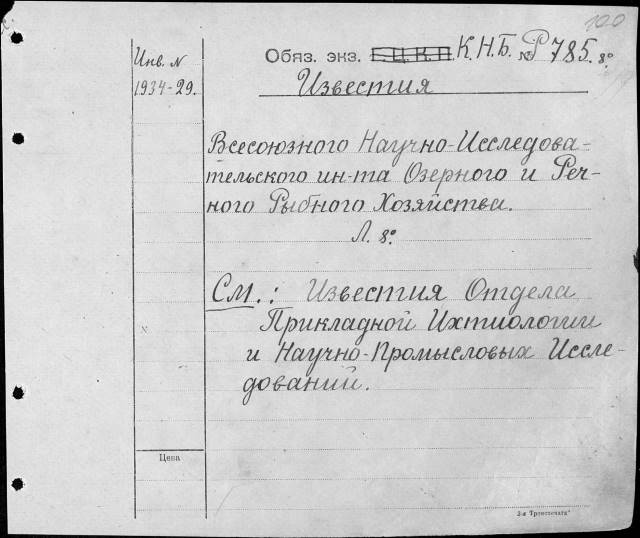 100
Инв. N
1934-29.
Обяз. экз. Г.Ц.К.П. К.Н.Б. № Р 785. 8°
Известия
Всесоюзного Научно-Исследова-
тельского ин-та Озерного и Реч-
ного Рыбного Хозяйства.
Л. 8°
См.: Известия Отдела
Прикладной Ихтиологии
и Научно-Промысловых Иссле-
дований.
Цена